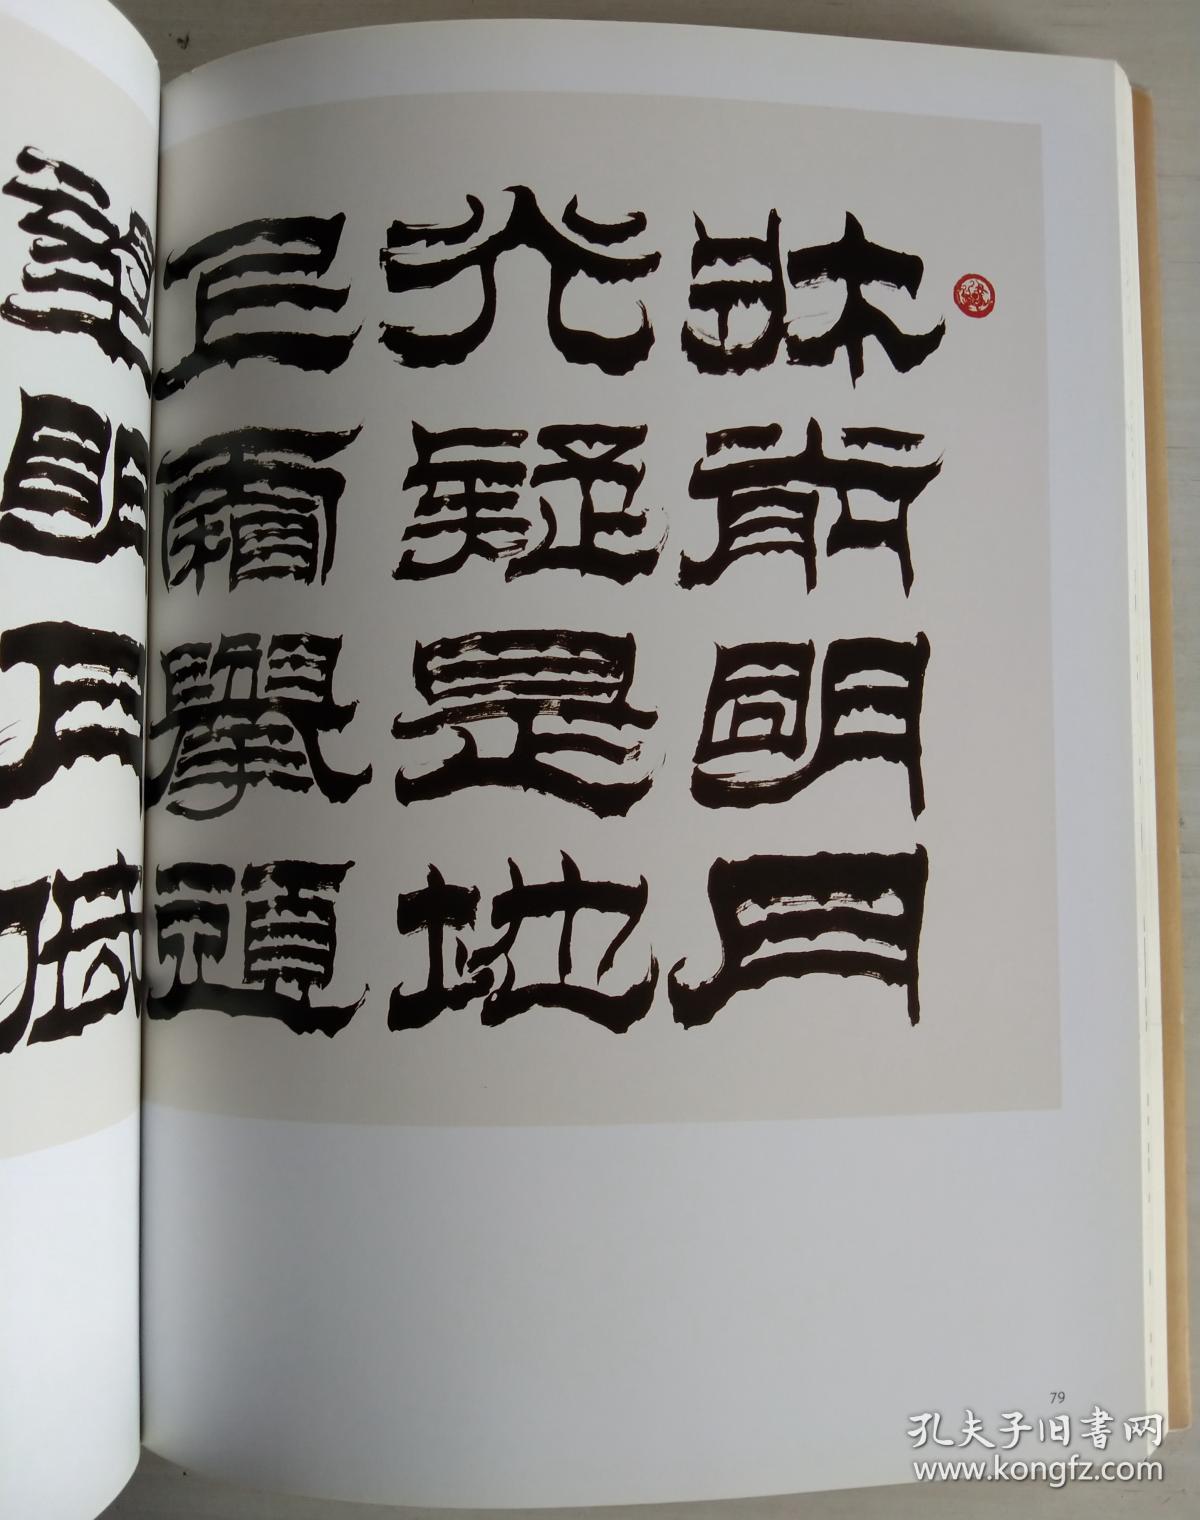 牀前明月
光疑是地
上霜舉頭
望明月低
79
孔夫子旧書网
www.kongfz.com